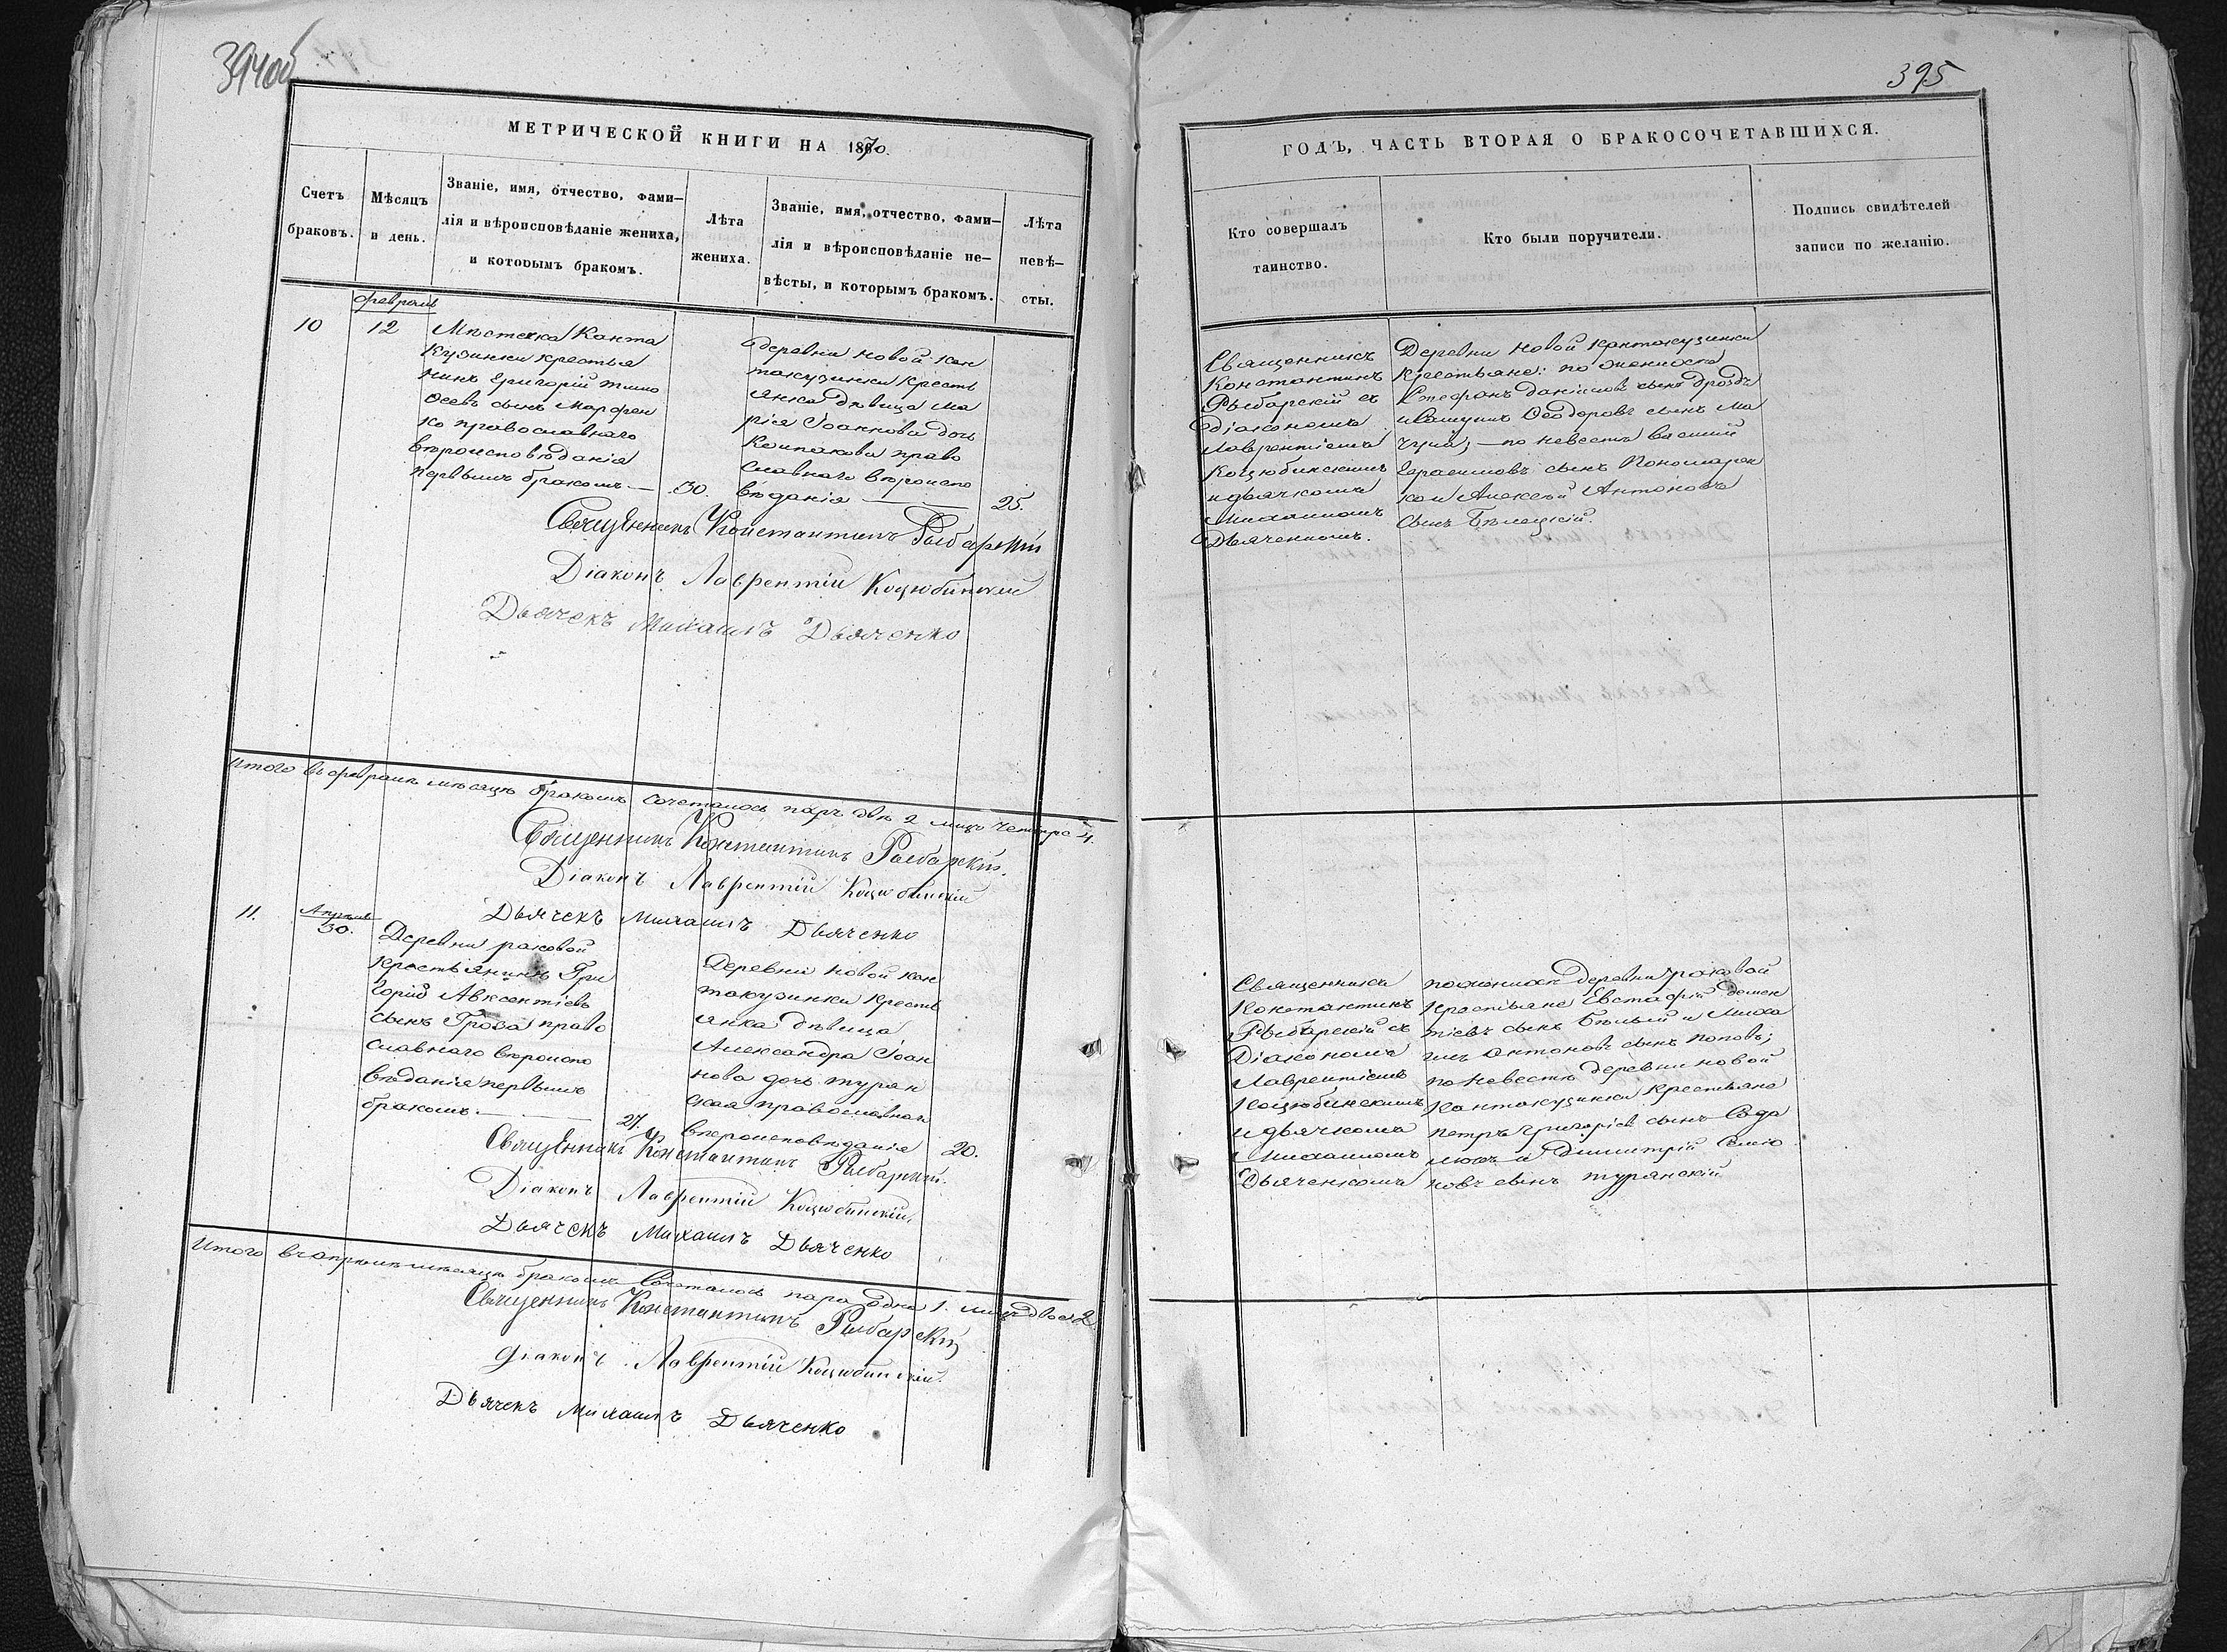 394об
МЕТРИЧЕСКОЙ КНИГИ НА 1870.
Счетъ
браковъ.
Мѣсяцъ
и день.
Званіе, имя, отчество, фами–
лія и вѣроисповѣданіе жениха,
и которымъ бракомъ.
Лѣта
жениха.
Званіе, имя, отчество, фами–
лія и вѣроисповѣданіе не–
вѣсты, и которымъ бракомъ.
Лѣта
невѣ–
сты.
февраль
10
12
Мѣстечка Канта
кузинки крестья
нинъ Григорій Тимо
ѳеевъ сынъ Марфен
ко православнаго
вѣроисповѣданія
первымъ бракомъ —
30.
Деревни Новой Кан
такузинки кресть
янка дѣвица Ма
рія Іоаннова дочь
право
славнаго вѣроиспо
вѣданія —
25.
Священникъ Константинъ Рыбарскій
Діаконъ Лаврентій Коцюбинскій
Дьячекъ Михаилъ Дьяченко
Итого въ февралѣ мѣсяцѣ бракомъ сочеталось паръ двѣ 2 лицъ четыре 4.
Священникъ Константинъ Рыбарскій.
Діаконъ Лаврентій Коцюбинскій
Дьячекъ Михаилъ Дьяченко
11.
Апрѣль
30.
Деревни раковой
крестьянинъ Гри
горій Авксентіевъ
сынъ Гроза право
славнаго вѣроиспо
вѣданія первымъ
бракомъ. —
27.
Деревни Новой Кан
такузинки кресть
янка дѣвица
Александра Іоан
нова дочь Турян
ская православнаго
вѣроисповѣданія
20.
Священникъ Константинъ Рыбарскій.
Діаконъ Лаврентій Коцюбинскій.
Дьячекъ Михаилъ Дьяченко
Итого въ апрѣлѣ мѣсяцѣ бракомъ сочеталось пара одна 1. лицъ двое 2.
Священникъ Константинъ Рыбарскій
Діаконъ Лаврентій Коцюбинскій.
Дьячекъ Михаилъ Дьяченко
395
ГОДЪ, ЧАСТЬ ВТОРАЯ О БРАКОСОЧЕТАВШИХСЯ.
Кто совершалъ
таинство.
Кто были поручители.
Подпись свидѣтелей
записи по желанію.
Священникъ
Константинъ
Рыбарскій съ
діакономъ
Лаврентіемъ
Коцюбинскимъ
и дьячкомъ
Михаиломъ
Дьяченкомъ.
Деревни Новой Кантакузинки
крестьяне: по женихѣ
Стефанъ Даніиловъ сынъ Дроздъ
Ѳеодоровъ сынъ Ма
— по невестѣ Василій
Герасимовъ сынъ Пономарен
ко и Алексѣй Антоновъ
сынъ Бѣлецкій.
Священникъ
Константинъ
Рыбарскій съ
Діакономъ
Лаврентіемъ
Коцюбинскимъ
и дьячкомъ
Михаиломъ
Дьяченкомъ
по женихѣ деревни раковой
крестьяне Евстафій Демен
тіевъ сынъ Бѣлый и Миха
илъ Антоновъ сынъ Поповъ;
по невестѣ деревни Новой
Кантакузинки крестьяне
Петръ Григоріевъ сынъ
и Димитрій Симео
новъ сынъ Турянскій